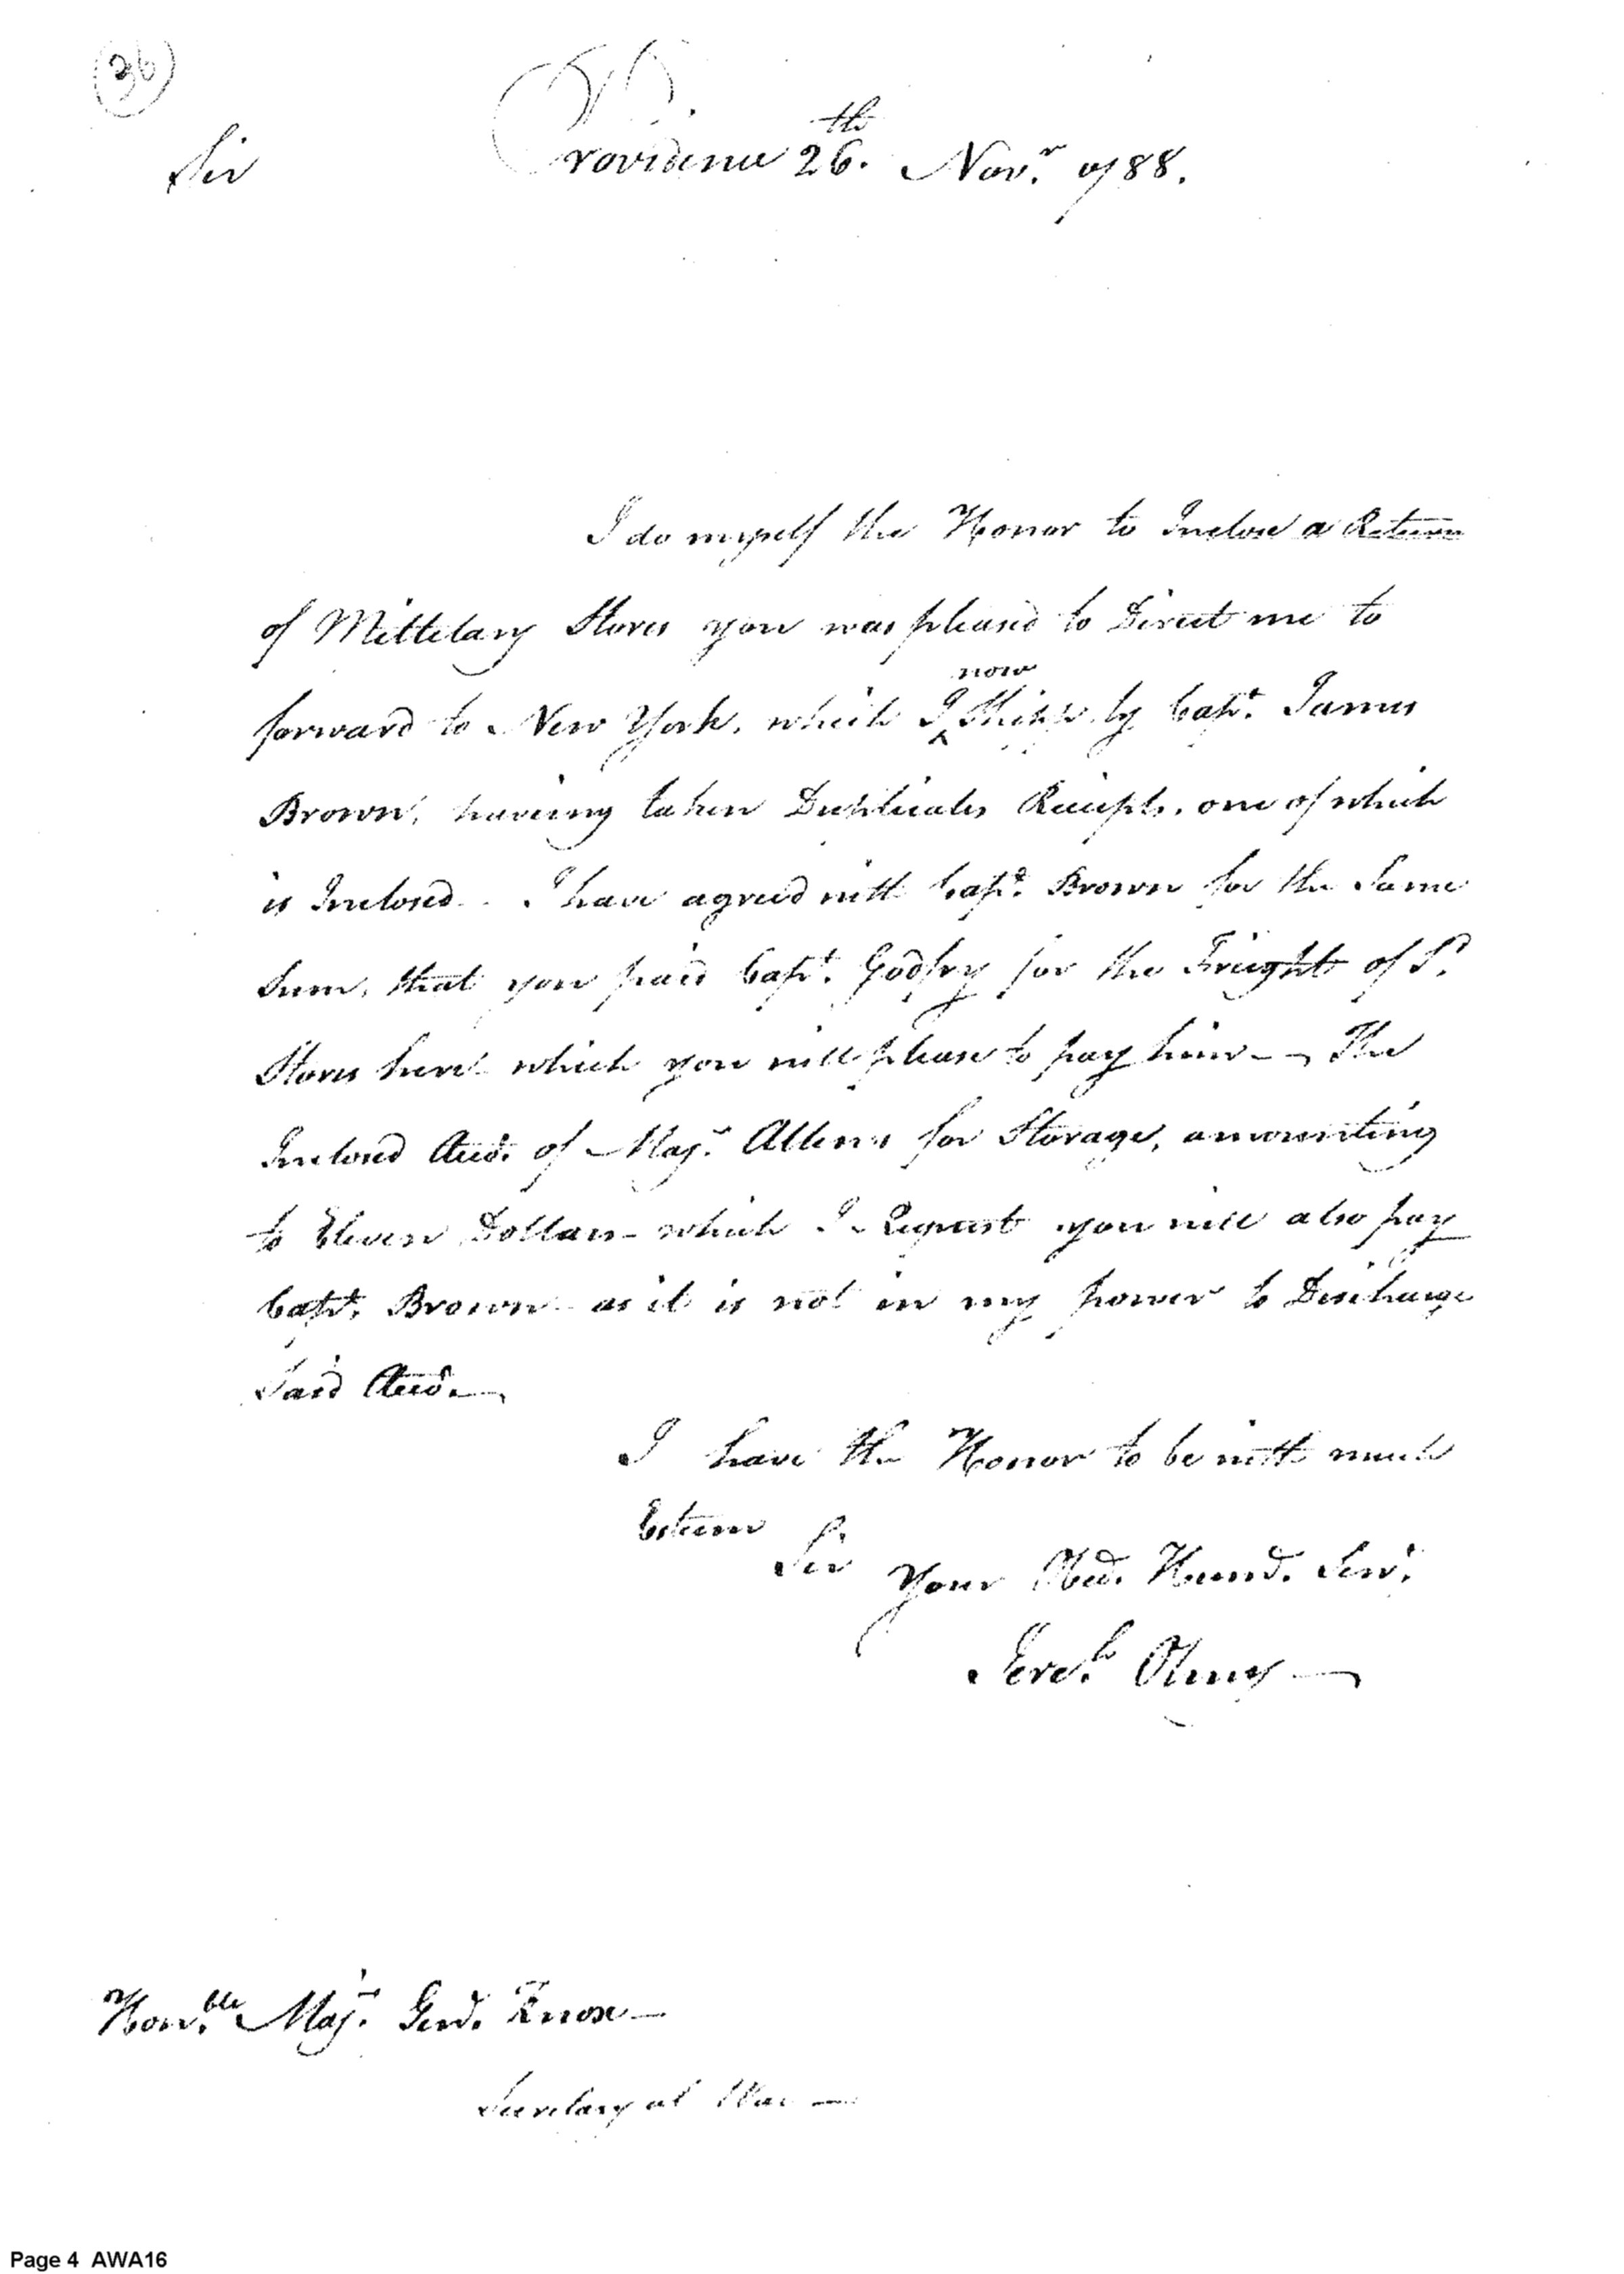 (36)
Sir Providence 26.th Novr. 1788.
I do myself the Honor to Inclose a Return
of Millitary Stores you was pleased to Direct me to
now
forward to New York, which I ^ Shipp by Capt. James
Brown, having taken Duplicates Receipts, one of which
is Inclosed - I have agreed with Capt. Brown for the Same
Sum, that you paid Capt. Godfry for the Freight of Sd.
Stores here which you will please to pay him - The
Inclosed Acco. of Majr. Allens for Storage, amounting
to Eleven Dollars - which I Request you will also pay
Capt. Brown - as it is not in my power to Discharge
Said Acco. -
I have the Honor to be with much
Esteem
Sir Your Obed. Humd. Servt.
Jereh. Olney -
Honble. Majr. Genl. Knox -
Secretary at War -
Page 4 AWA16